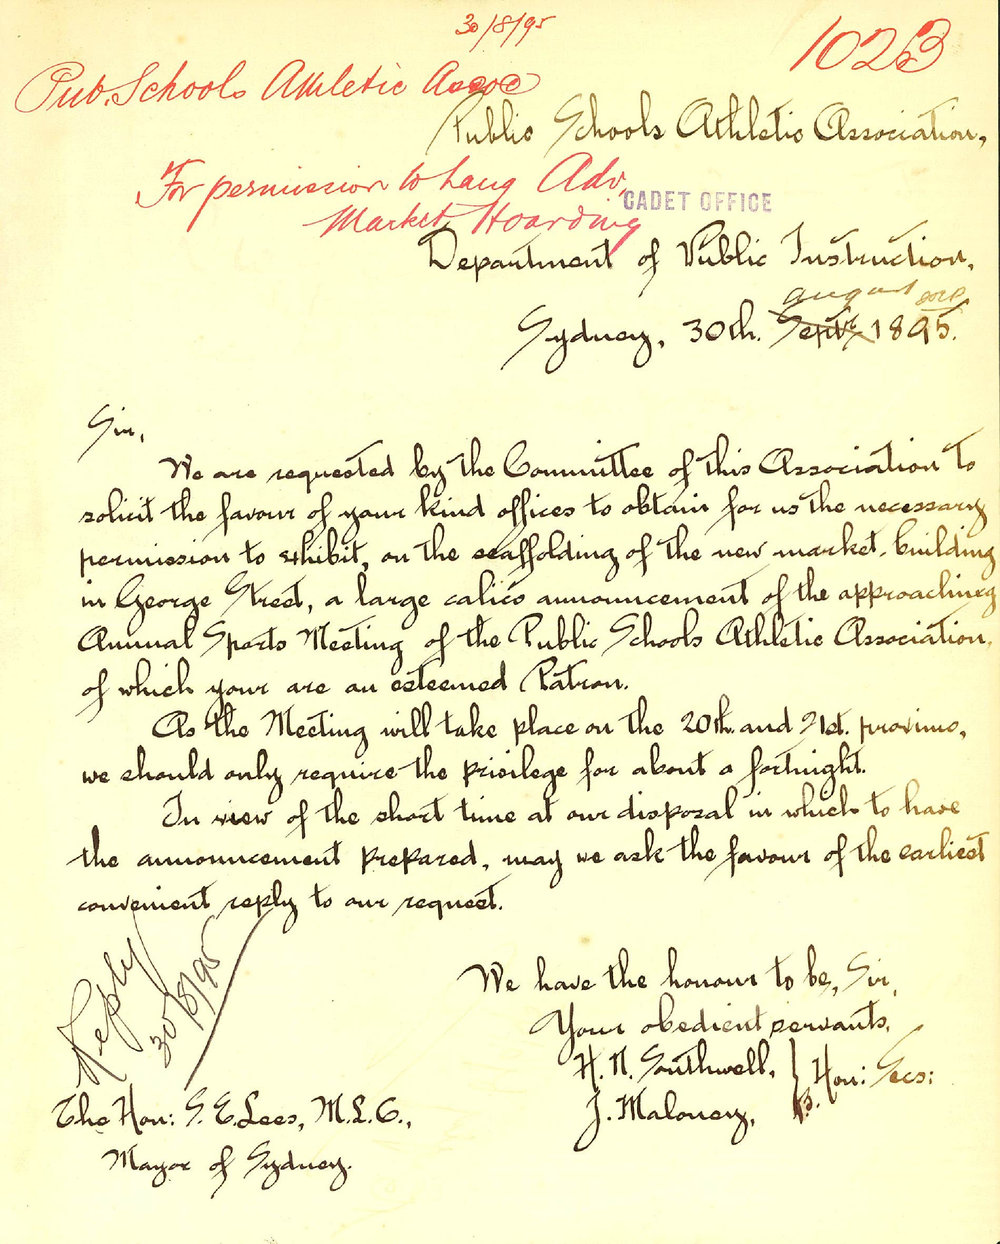 30/8/95
1023
Pub. Schools Athletic Assoc
Public Schools Athletic Association,
For permission to hang Adv.
Market Hoarding
CADET OFFICE
Department of Public Instruction,
august
Sydney, 30th. Septr 1895.
Sir,
We are requested by the Committee of this Association to
solicit the favour of your kind offices to obtain for us the necessary
permission to exhibit, on the scaffolding of the new market building
in George Street, a large calico announcement of the approaching
Annual Sports Meeting of the Public Schools Athletic Association,
of which your are an esteemed Patron.
As the Meeting will take place on the 20th. and 21st. proximo,
we should only require the privilege for about a fortnight.
In view of the short time at our disposal in which to have
the announcement prepared, may we ask the favour of the earliest
convenient reply to our request.
Reply
30/8/95
We have the honour to be, Sir,
Your obedient servants,
H. N. Southwell, } Hon: Secs:
J. Maloney,
The Hon: S. E. Lees, M.L.C.,
Mayor of Sydney.